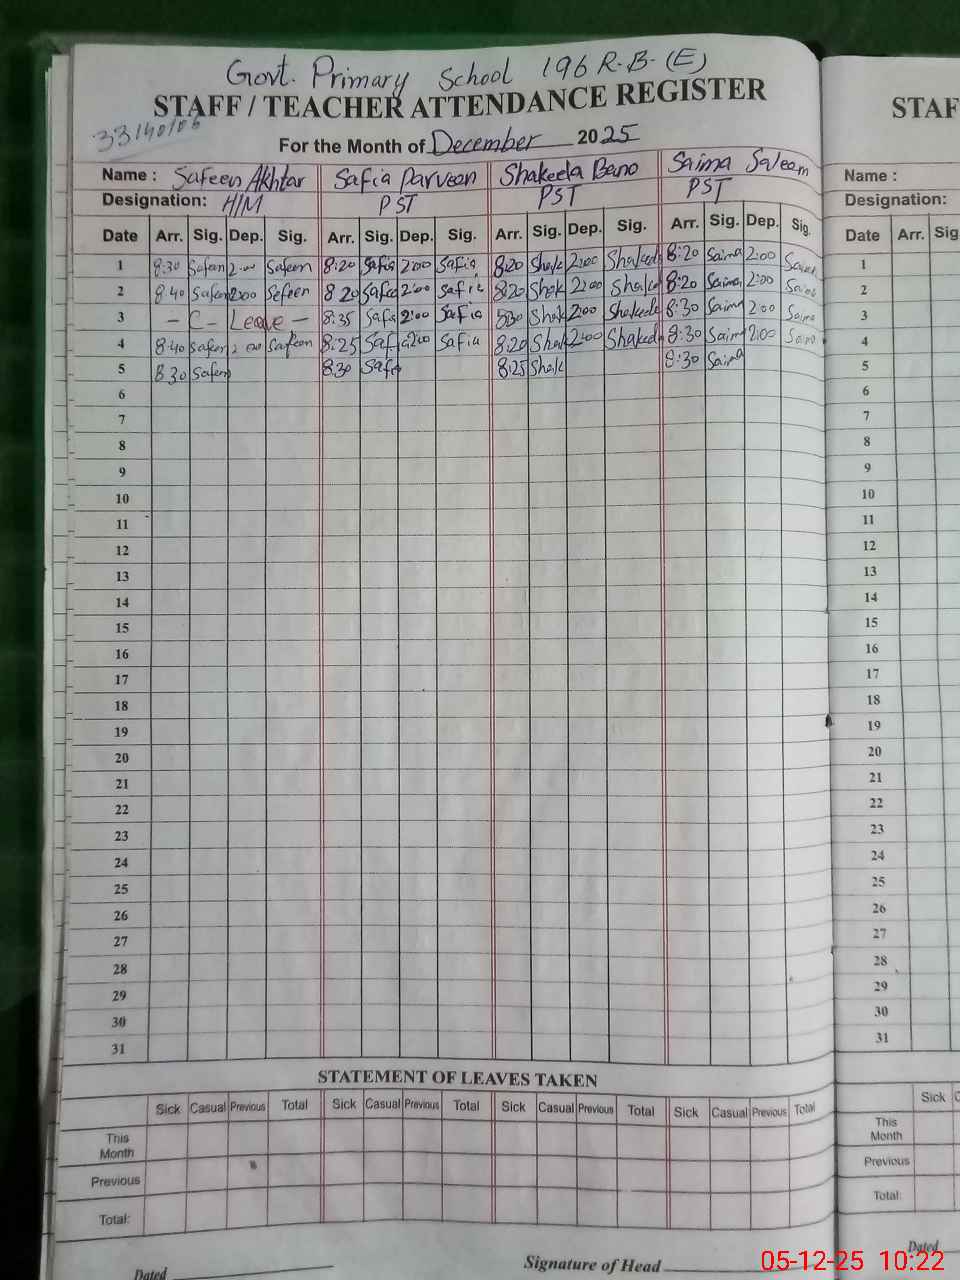 Govt. Primary School 196 R.B. (E)
STAFF / TEACHER ATTENDANCE REGISTER
For the Month of December 2025
Name : Safeen Akhtar Safia Parveen Shakeela Bano Saima Saleem
Designation: H/M PST PST PST
Date Arr. Sig. Dep. Sig. Arr. Sig. Dep. Sig. Arr. Sig. Dep. Sig. Arr. Sig. Dep. Sig.
1 8:30 Safeen 2:00 Safeen 8:20 Safia 2:00 Safia 8:20 Shak 2:00 Shakeela 8:20 Saima 2:00 Saima
2 8:40 Safeen 2:00 Safeen 8:20 Safia 2:00 Safia 8:20 Shak 2:00 Shakeela 8:20 Saima 2:00 Saima
3 - C - Leave - 8:35 Safia 2:00 Safia 8:30 Shak 2:00 Shakeela 8:30 Saima 2:00 Saima
4 8:40 Safeen 2:00 Safeen 8:25 Safia 2:00 Safia 8:20 Shak 2:00 Shakeela 8:30 Saima 2:00 Saima
5 8:30 Safeen 8:30 Safia 8:25 Shak 8:30 Saima
6
7
8
9
10
11
12
13
14
15
16
17
18
19
20
21
22
23
24
25
26
27
28
29
30
31
STATEMENT OF LEAVES TAKEN
Sick Casual Previous Total Sick Casual Previous Total Sick Casual Previous Total Sick Casual Previous Total
This
Month
Previous
Total:
Dated
Signature of Head
STAF
Name :
Designation:
Date Arr. Sig
1
2
3
4
5
6
7
8
9
10
11
12
13
14
15
16
17
18
19
20
21
22
23
24
25
26
27
28
29
30
31
Sick
This
Month
Previous
Total:
Dated
05-12-25 10:22